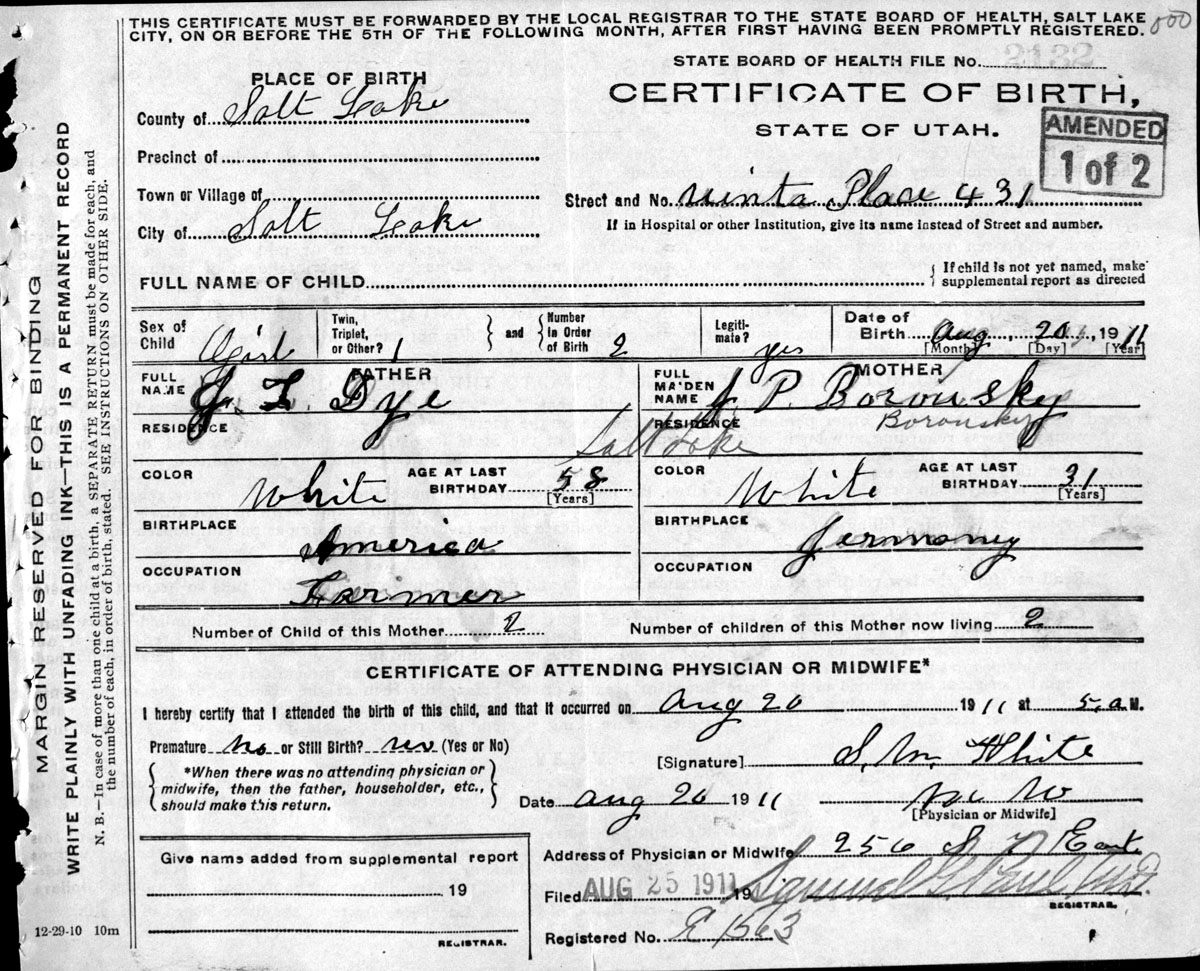 THIS CERTIFICATE MUST BE FORWARDED BY THE LOCAL REGISTRAR TO THE STATE BOARD OF HEALTH, SALT LAKE
CITY, ON OR BEFORE THE 5TH OF THE FOLLOWING MONTH, AFTER FIRST HAVING BEEN PROMPTLY REGISTERED.
000
STATE BOARD OF HEALTH FILE No.
PLACE OF BIRTH
CERTIFICATE OF BIRTH,
STATE OF UTAH.
AMENDED
1 of 2
County of Salt Lake
Precinct of
Town or Village of
City of Salt Lake
Street and No. uinta Place 431
If in Hospital or other Institution, give its name instead of Street and number.
FULL NAME OF CHILD
{ If child is not yet named, make
supplemental report as directed
Sex of Child Girl
Twin, Triplet, or Other? 1 } and { Number in Order of Birth 2
Legiti-mate? yes
Date of Birth Aug 20, 1911
[Month] [Day] [Year]
FATHER
FULL NAME J. L. Dye
MOTHER
FULL MAIDEN NAME J P. Borousky
Boronsky
RESIDENCE
Salt Lake
RESIDENCE
COLOR White
AGE AT LAST BIRTHDAY 58
[Years]
COLOR White
AGE AT LAST BIRTHDAY 31
[Years]
BIRTHPLACE America
BIRTHPLACE Jermoney
OCCUPATION Farmer
OCCUPATION
Number of Child of this Mother 2
Number of children of this Mother now living 2
CERTIFICATE OF ATTENDING PHYSICIAN OR MIDWIFE*
I hereby certify that I attended the birth of this child, and that it occurred on Aug 20 1911 at 5, a M.
Premature no or Still Birth? no (Yes or No)
{ *When there was no attending physician or
midwife, then the father, householder, etc.,
should make this return. }
[Signature] S. M. White
Date Aug 20 1911
[Physician or Midwife]
Address of Physician or Midwife 256 East
Give name added from supplemental report
19
REGISTRAR.
Filed AUG 25 1911 19 Samuel G Paul M.D.
REGISTRAR.
Registered No. 1563
12-29-10 10m
MARGIN RESERVED FOR BINDING
WRITE PLAINLY WITH UNFADING INK—THIS IS A PERMANENT RECORD
N. B.—In case of more than one child at a birth, a SEPARATE RETURN must be made for each, and
the number of each, in order of birth, stated. SEE INSTRUCTIONS ON OTHER SIDE.